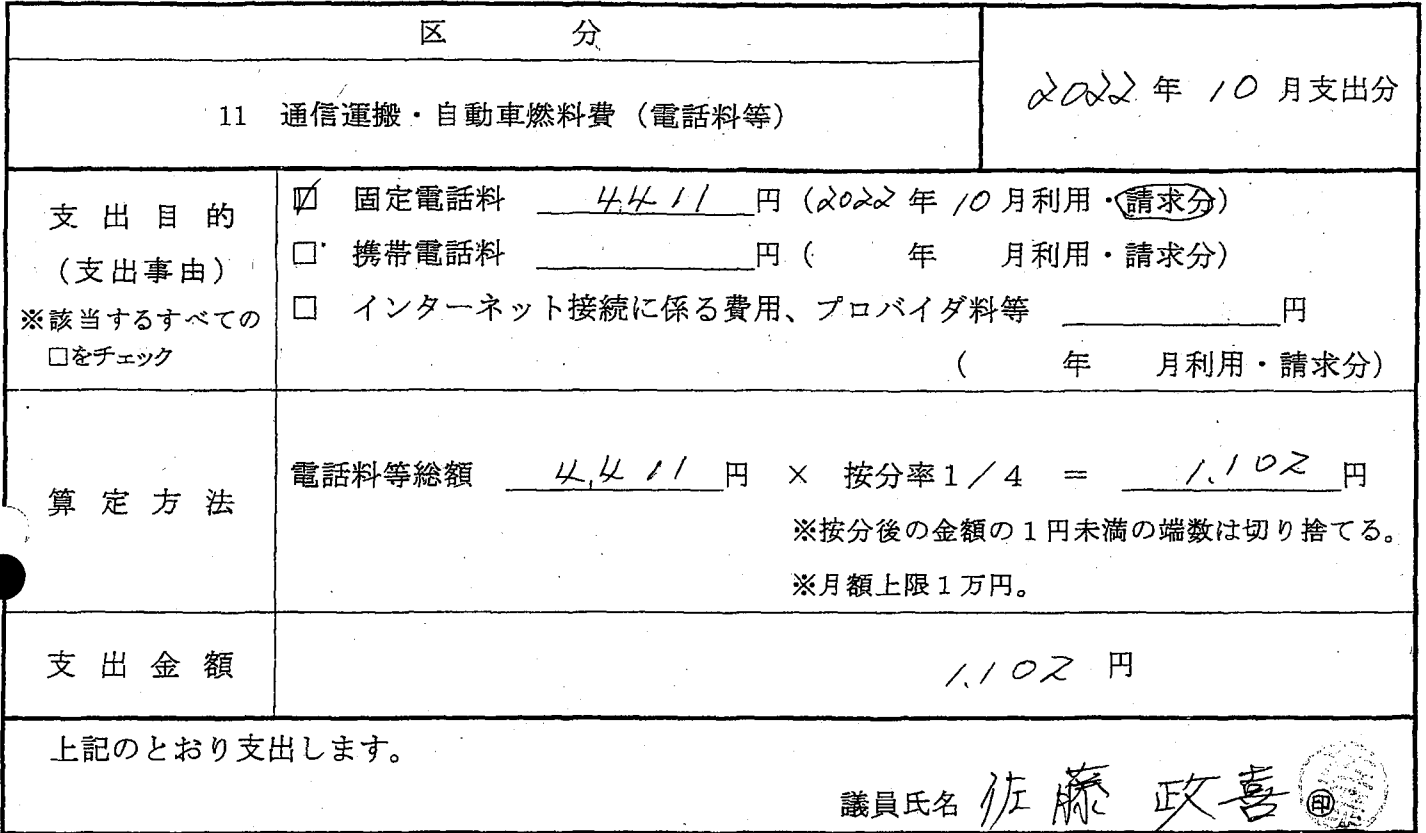 区 分
11 通信運搬・自動車燃料費(電話料等)
2022年 10 月支出分
支出目的
(支出事由)
※該当するすべての
□をチェック
☑ 固定電話料 4,411 円(2022年 10 月利用・請求分)
□ 携帯電話料 円( 年 月利用・請求分)
□ インターネット接続に係る費用、プロバイダ料等 円
( 年 月利用・請求分)
算定方法
電話料等総額 4,411 円 × 按分率1/4 = 1,102 円
※按分後の金額の1円未満の端数は切り捨てる。
※月額上限1万円。
支出金額
1,102 円
上記のとおり支出します。
議員氏名 佐藤 政喜 ㊞